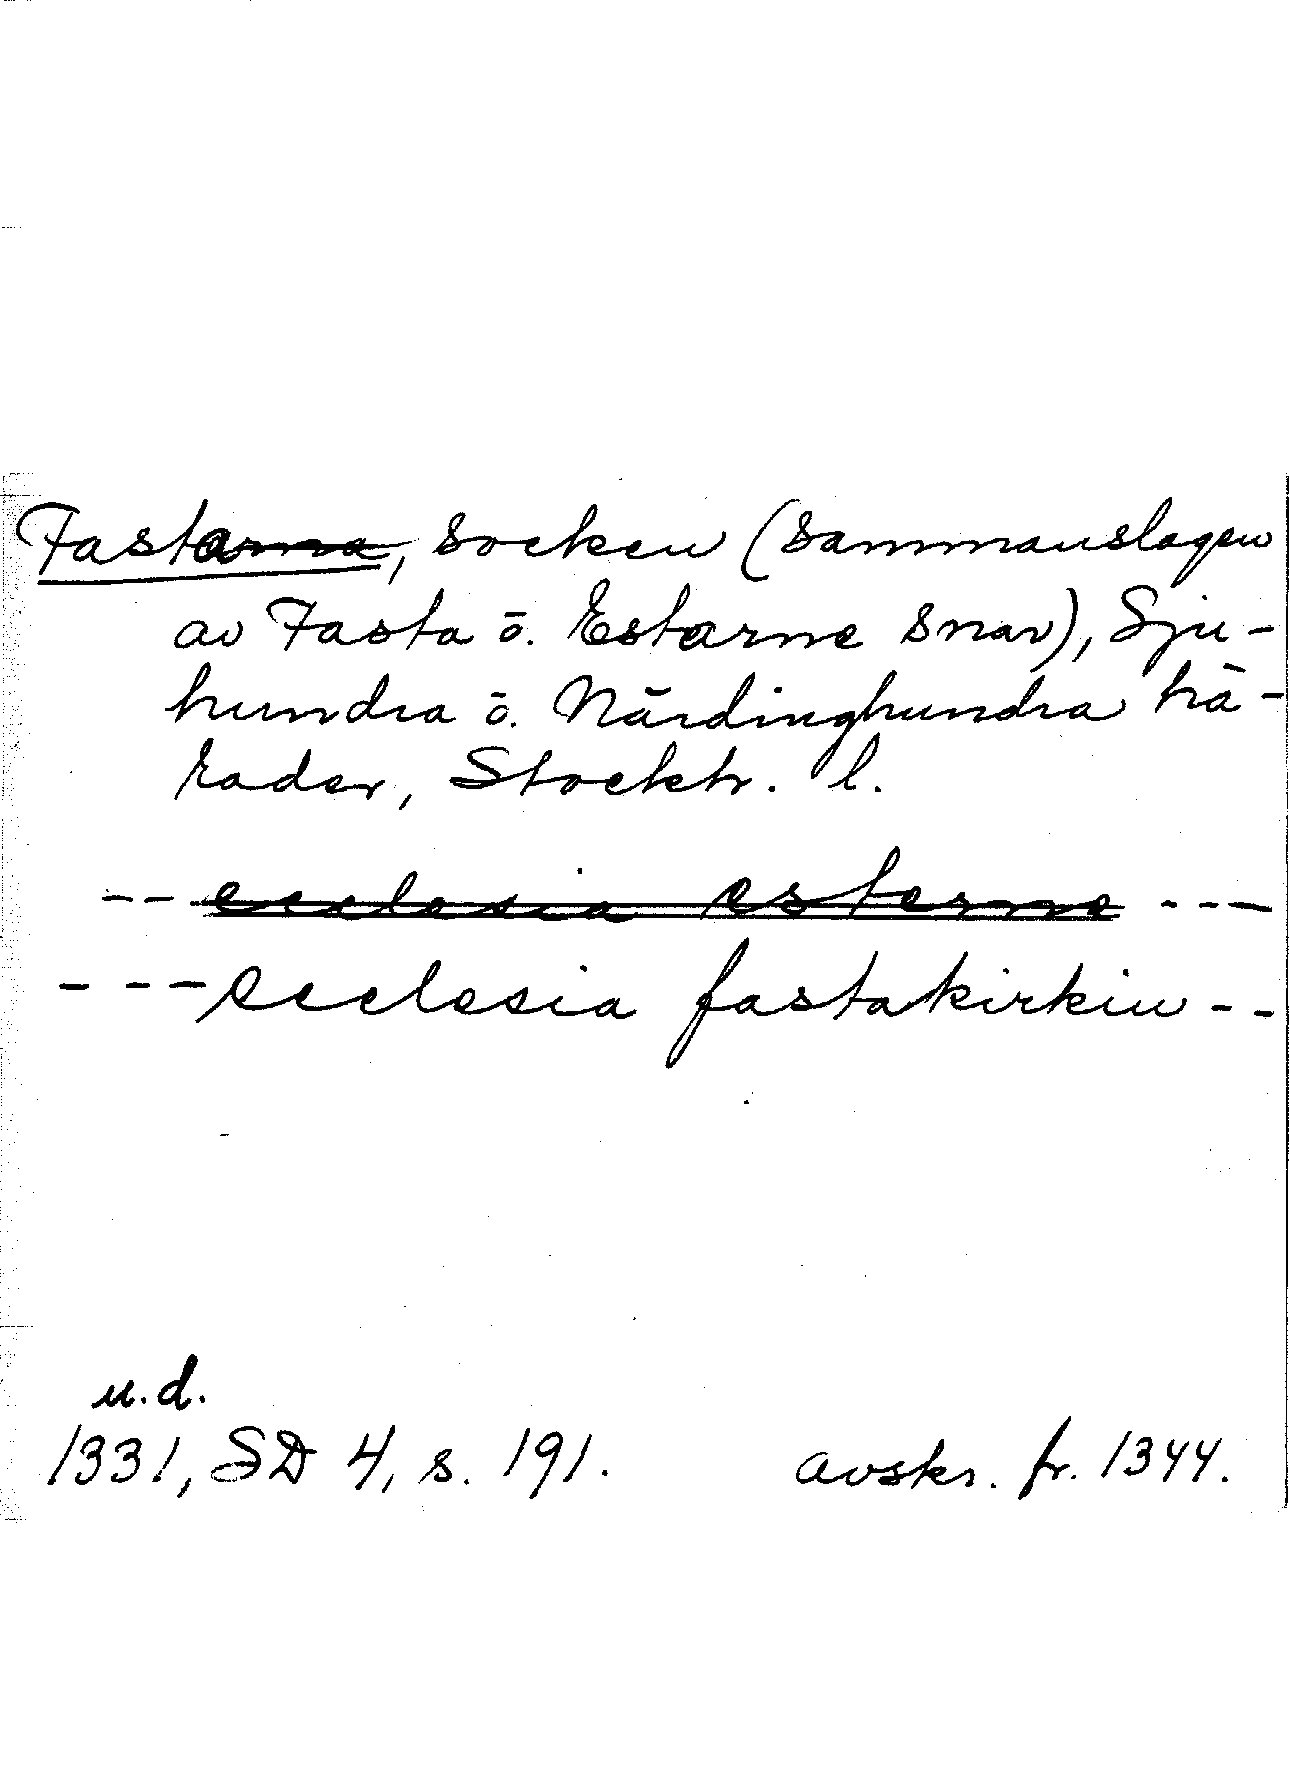 Fastarna, socken (sammanslagen
av Fasta o. Estarne snar), Sju-
hundra o. Närdinghundra hä-
rader, Stockh. l.
-- ecclesia esterne ---
--- ecclesia fastakirkiu --
u.d.
1331, SD 4, s. 191. avskr. fr. 1344.